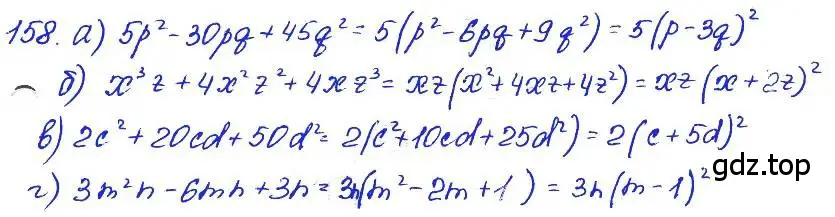 158. а) 5p² - 30pq + 45q² = 5(p² - 6pq + 9q²) = 5(p - 3q)²
б) x³z + 4x²z² + 4xz³ = xz(x² + 4xz + 4z²) = xz(x + 2z)²
в) 2c² + 20cd + 50d² = 2(c² + 10cd + 25d²) = 2(c + 5d)²
г) 3m²n - 6mn + 3n = 3n(m² - 2m + 1) = 3n(m - 1)²
gdz.top